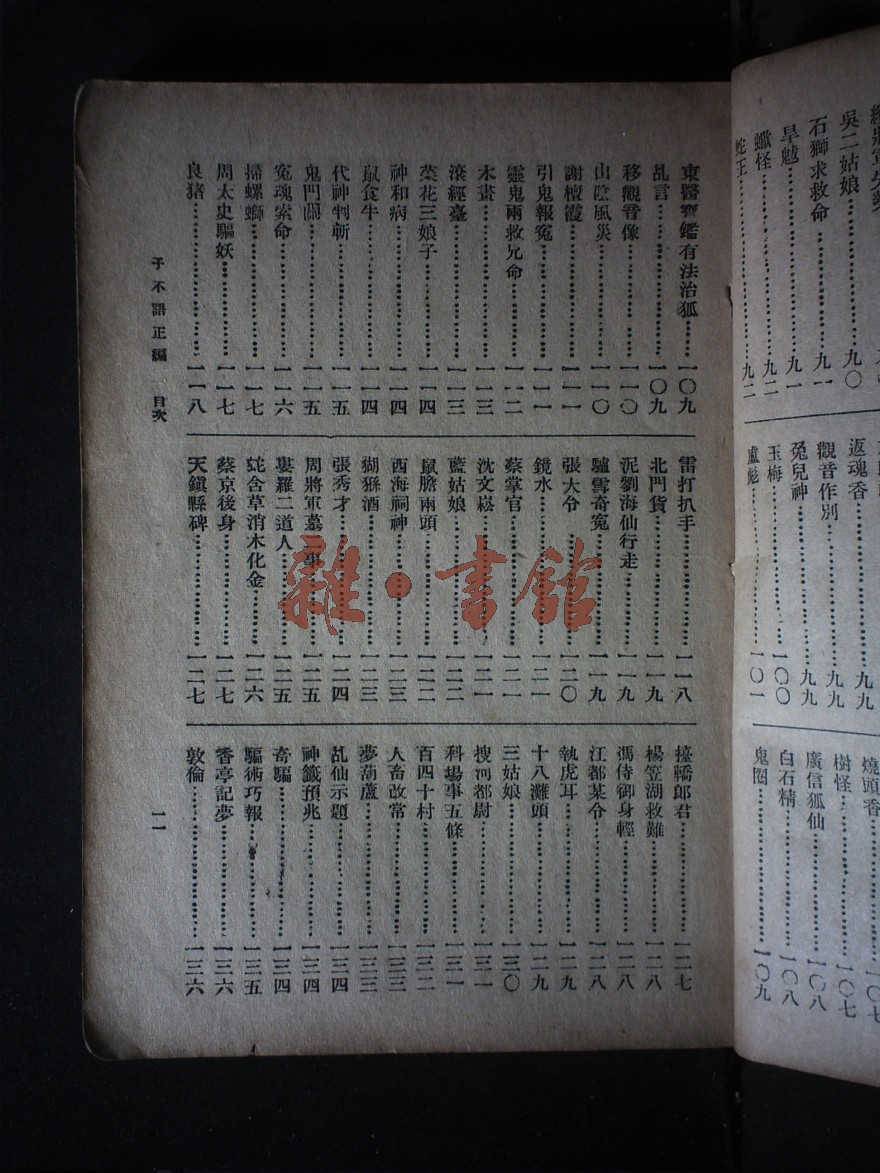 吳二姑娘……九〇
石獅求救命……九一
旱魃……九一
蠍怪……九二
蛇王……九二
返魂香……九九
觀音作別……九九
兔兒神……九九
玉梅……一〇〇
盧彪……一〇一
燒頭香……一〇七
樹怪……一〇七
廣信狐仙……一〇八
白石精……一〇八
鬼圈……一〇九
東醫寶鑑有法治狐……一〇九
乩言……一〇九
移觀音像……一一〇
山陰風災……一一〇
謝檀霞……一一一
引鬼報寃……一一一
靈鬼兩救兄命……一一二
木畫……一一三
滾經臺……一一三
菜花三娘子……一一四
神和病……一一四
鼠食牛……一一四
代神判斬……一一五
鬼門關……一一五
寃魂索命……一一六
掃螺螄……一一七
周太史驅妖……一一七
良豬……一一八
雷打扒手……一一八
北門貨……一一九
泥劉海仙行走……一一九
驢雪奇寃……一一九
張大令……一二〇
鏡水……一二一
蔡掌官……一二一
沈文崧……一二一
藍姑娘……一二二
鼠膽兩頭……一二二
西海祠神……一二三
猢猻酒……一二三
張秀才……一二四
周將軍墓二事……一二五
婁羅二道人……一二五
蛇含草消木化金……一二六
蔡京後身……一二七
天鎮縣碑……一二七
擡轎郎君……一二七
楊笠湖救難……一二八
馮侍御身輕……一二八
江都某令……一二八
執虎耳……一二九
十八灘頭……一二九
三姑娘……一三〇
搜河都尉……一三一
科場事五條……一三一
百四十村……一三二
人畜改常……一三三
夢葫蘆……一三三
乩仙示題……一三四
神籤預兆……一三四
奇騙……一三四
騙術巧報……一三五
香亭記夢……一三六
敦倫……一三六
子不語正編 目次
一一
雜·書館